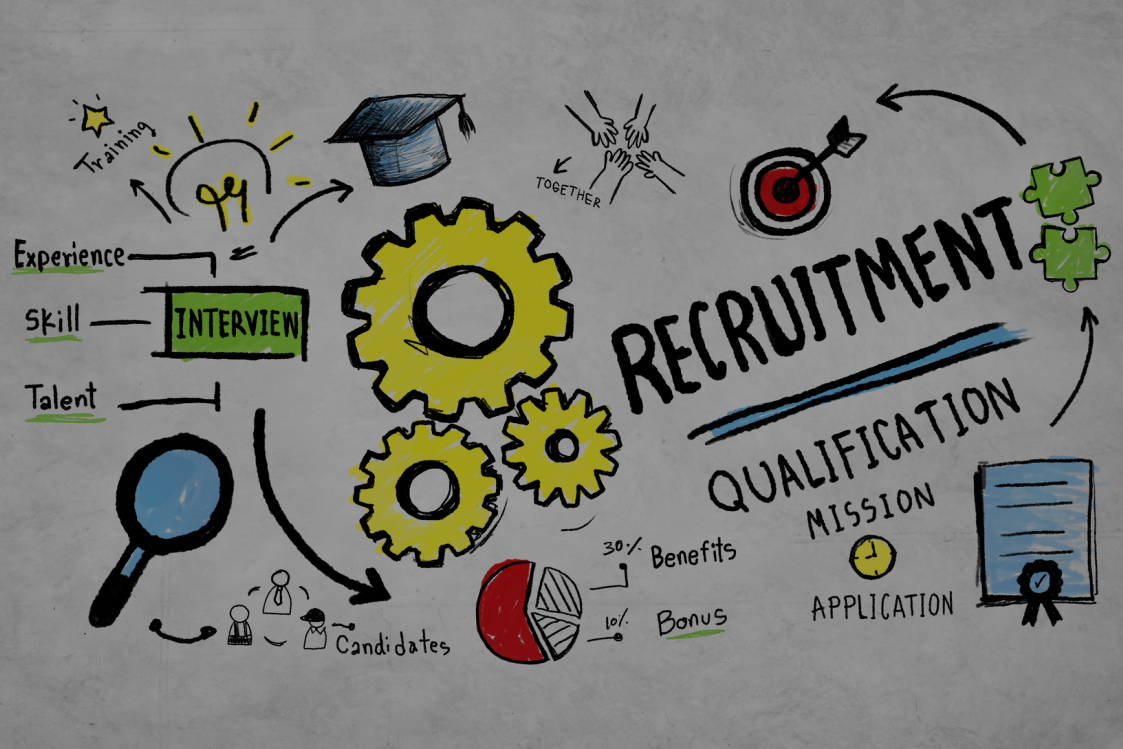 Training
Experience
Skill
Talent
INTERVIEW
TOGETHER
RECRUITMENT
QUALIFICATION
MISSION
APPLICATION
30% Benefits
10% Bonus
Candidates